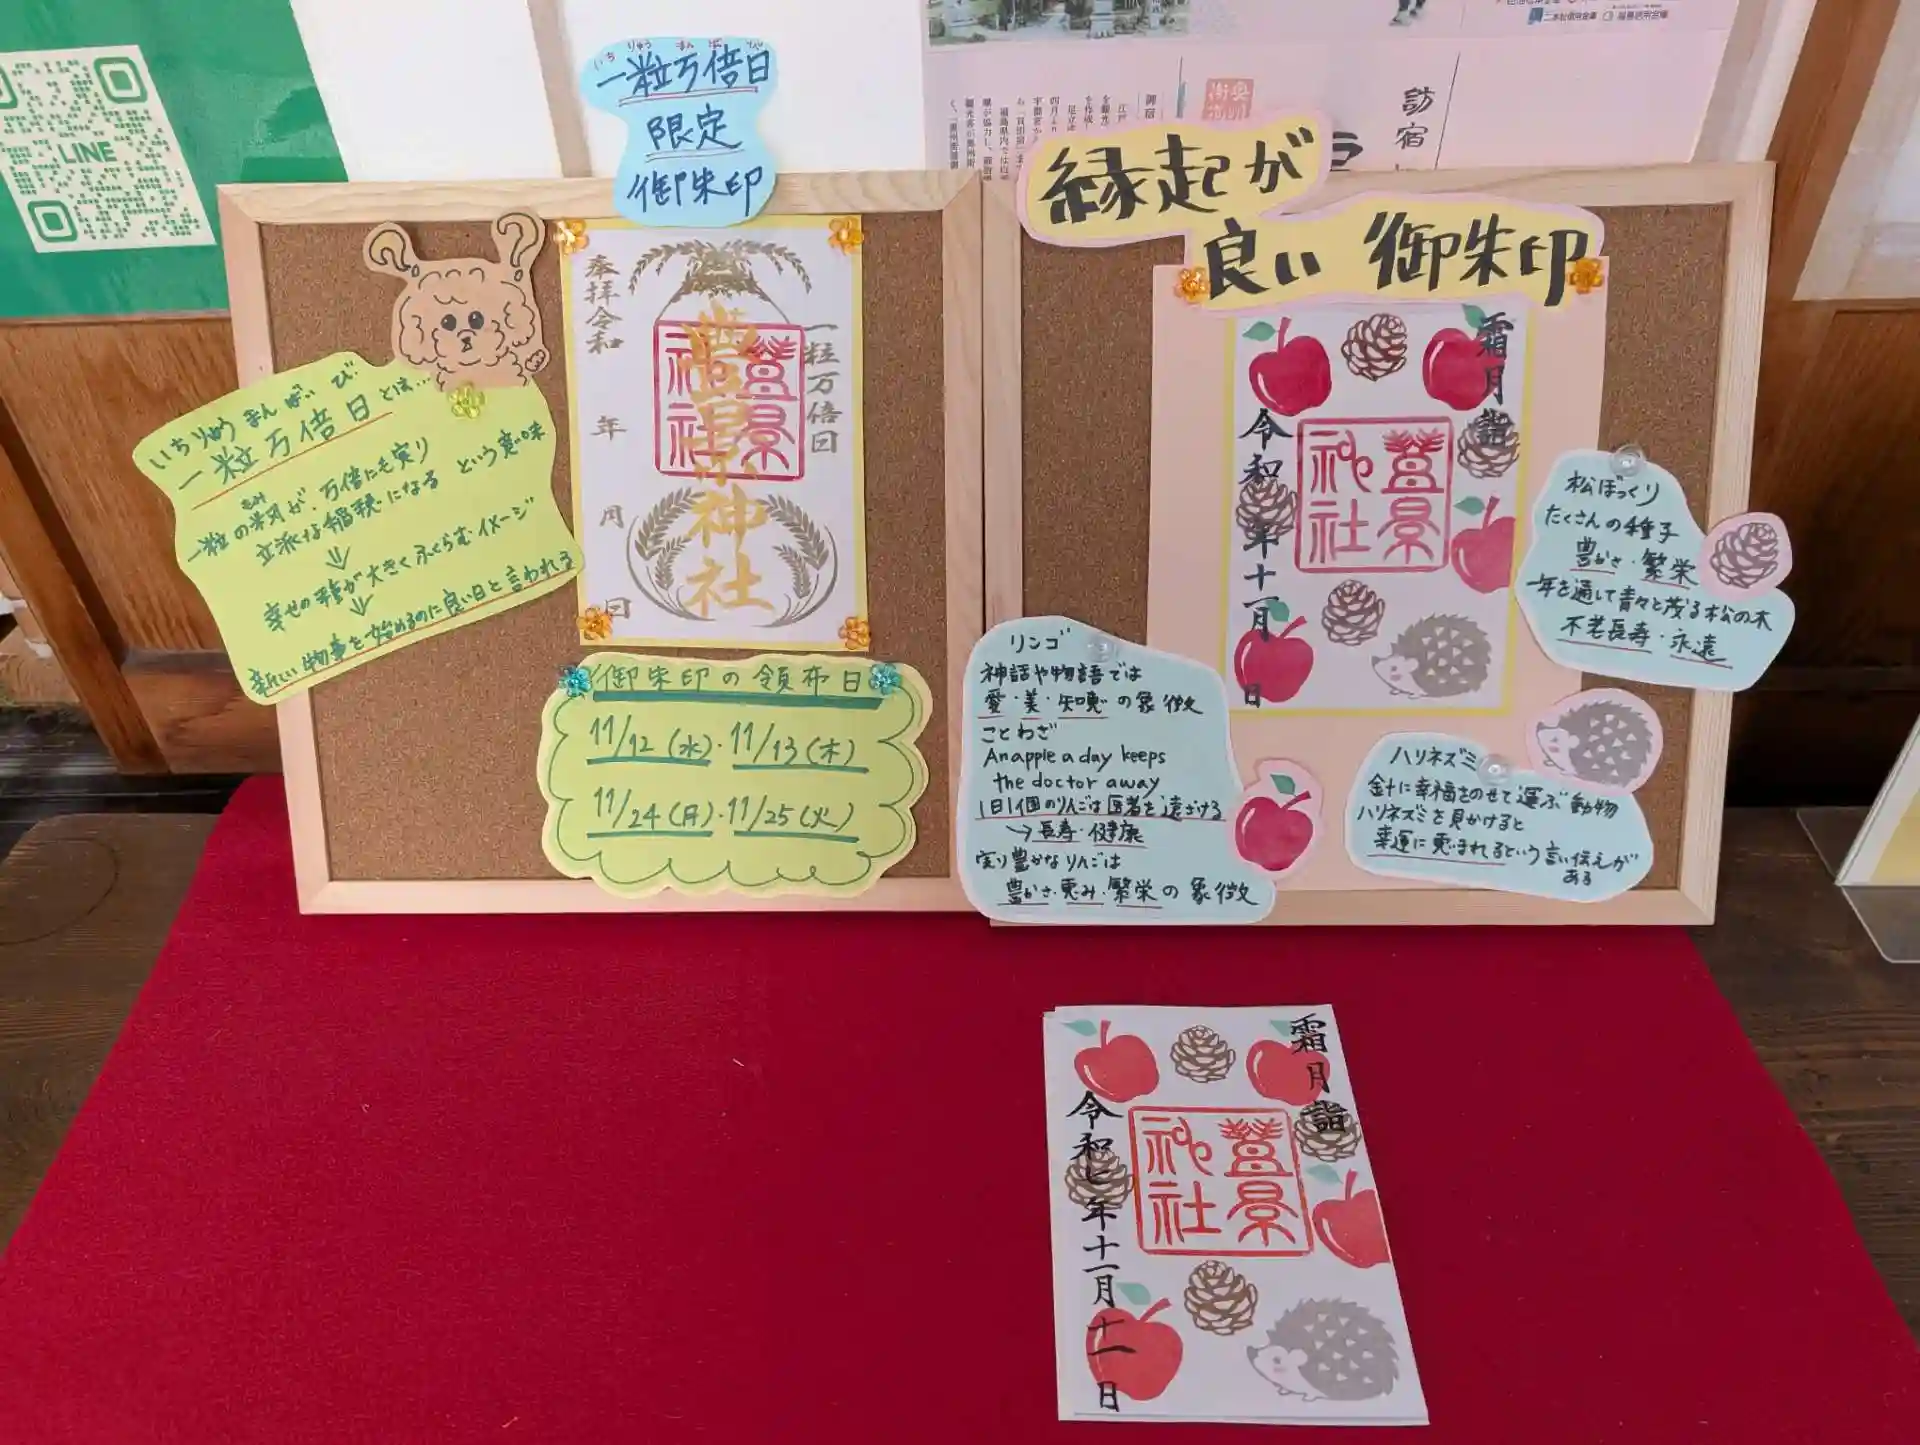 LINE
いちりゅうまんばいび
一粒万倍日
限定
御朱印
いちりゅうまんばいび
一粒万倍日とは…
一粒の籾が、万倍にも実り
もみ
立派な稲穂になる という意味
幸せの種が大きくふくらむイメージ
新しい物事を始めるのに良い日と言われる
奉拝令和 年 月 日
一粒万倍日
神社
御朱印の領布日
11/12(水)・11/13(木)
11/24(月)・11/25(火)
訪宿
縁起が
良い 御朱印
霜月詣
神社
令和 年十一月 日
リンゴ
神話や物語では
愛・美・知恵の象徴
ことわざ
An apple a day keeps
the doctor away
1日1個のりんごは医者を遠ざける
→長寿・健康
実り豊かなりんごは
豊かさ・恵み・繁栄の象徴
松ぼっくり
たくさんの種子
豊かさ・繁栄
年を通して青々と茂る松の木
不老長寿・永遠
ハリネズミ
針に幸福をのせて運ぶ動物
ハリネズミを見かけると
幸運に恵まれるという言い伝えが
ある
霜月詣
神社
令和七年十一月十一日